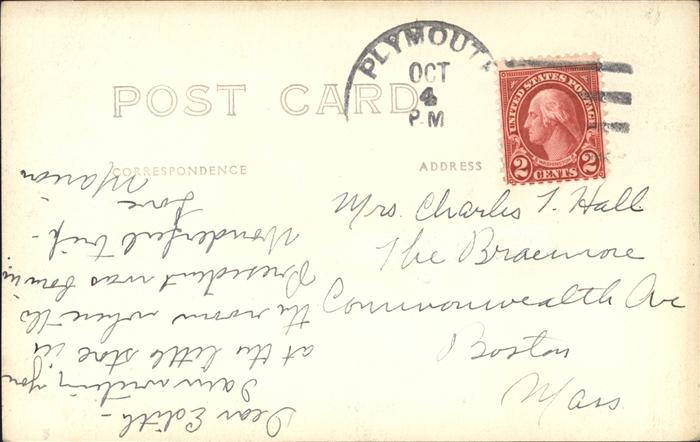 PLYMOUTH
OCT
4
P.M
UNITED STATES POSTAGE
WASHINGTON
2 CENTS 2
POST CARD
CORRESPONDENCE
ADDRESS
Mrs. Charles T. Hall
The Braemore
Commonwealth Ave
Boston
Mass
Dear Edith -
I am writing you
at the little store in
the room where the
President was born in.
Wonderful trip -
Love -
Marion